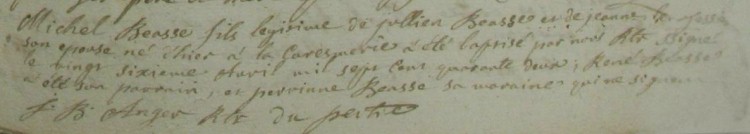 Michel Beasse fils legisime de jullien Beasse et de jeanne
son epouse né d'hier à la a été baptisé par nous Rtr signé
le vingt sixieme avril mil sept cens quarante deux, René Beasse
a été son parrain, et perrinne Beasse sa maraine qui ne signent
J: B: Anger Rtr du pertre